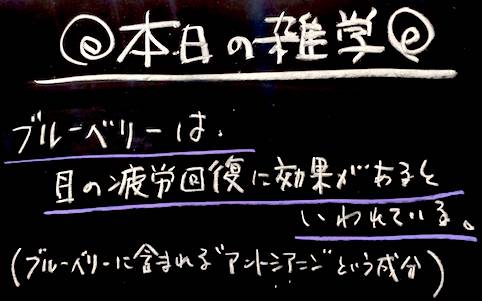 @本日の雑学@
ブルーベリーは、
目の疲労回復に効果があると
いわれている。
(ブルーベリーに含まれる"アントシアニン"という成分)